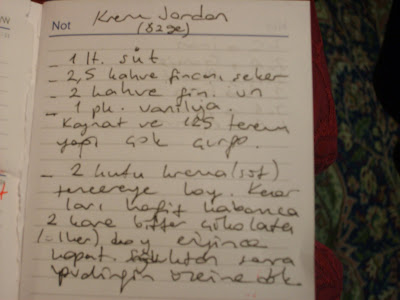 Not
Krem Jordan
(Özge)
– 1 lt. süt
– 2,5 kahve fincanı şeker
– 2 kahve fin. un
– 1 pk. vanilya.
Kaynat ve 125 terem
yağı çok çırp.
– 2 kutu krema (süt)
tencereye koy. Kenar
ları hafif kabarınca
2 kare bitter çikolata
koy eriyince
kapat sonra
pudingin üzerine dök